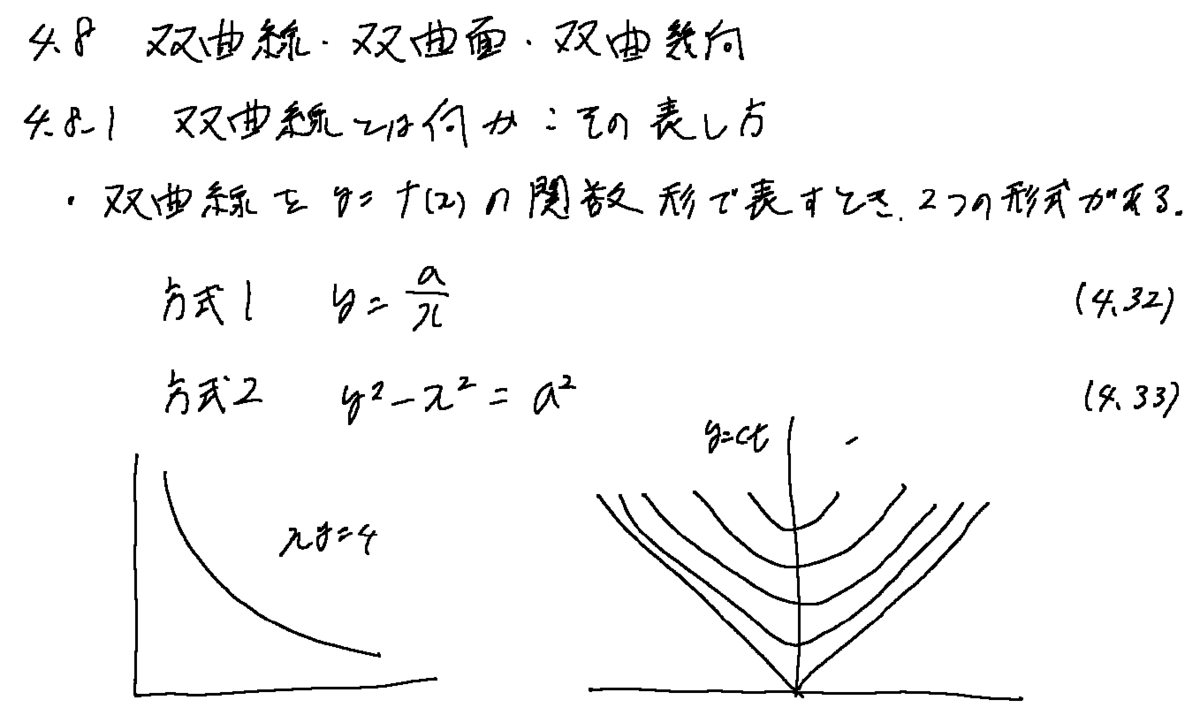 4.8 双曲線・双曲面・双曲幾何
4.8.1 双曲線とは何か：その表し方
・双曲線を y=f(x)の関数形で表すとき、2つの形式がある。
方式1 y=a/x (4.32)
方式2 y²-x²=a² (4.33)
y=ct
xy=4